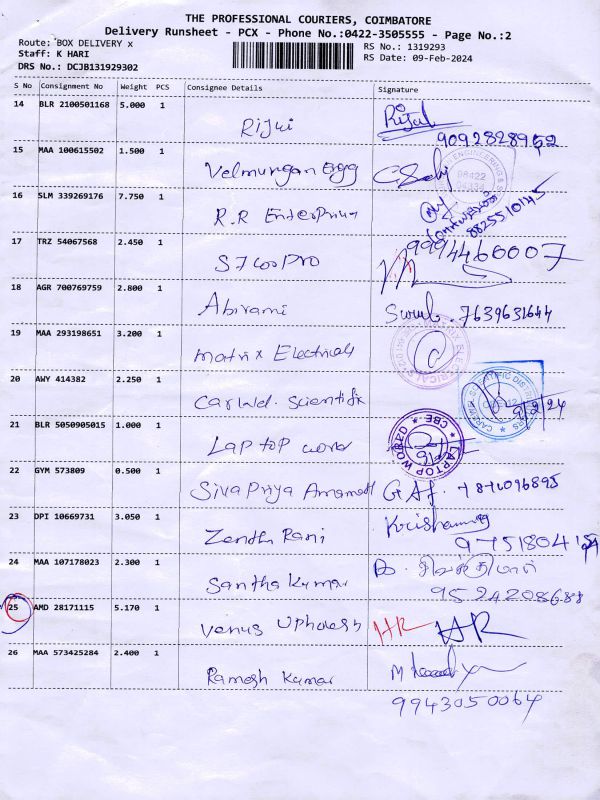 THE PROFESSIONAL COURIERS, COIMBATORE
Delivery Runsheet - PCX - Phone No.:0422-3505555 - Page No.:2
Route: BOX DELIVERY x
Staff: K HARI
DRS No.: DCJB131929302
RS No.: 1319293
RS Date: 09-Feb-2024
S No Consignment No Weight PCS Consignee Details Signature
14 BLR 2100501168 5.000 1
Rijui
9092828952
15 MAA 100615502 1.500 1
Velmurugan
16 SLM 339269176 7.750 1
R.R Enterprises
8825510145
17 TRZ 54067568 2.450 1
9994460007
18 AGR 700769759 2.800 1
Abirami
7639631644
19 MAA 293198651 3.200 1
Matrix Electricals
20 AWY 414382 2.250 1
Scientifix
9/2/24
21 BLR 5050905015 1.000 1
Laptop World
LAPTOP WORLD ★ CBE ★
22 GYM 573809 0.500 1
Siva Priya
23 DPI 10669731 3.050 1
Rani
24 MAA 107178023 2.300 1
Santha Kumar
9524208688
25 AMD 28171115 5.170 1
Venus
HR HR
26 MAA 573425284 2.400 1
Ramesh Kumar
9943050064